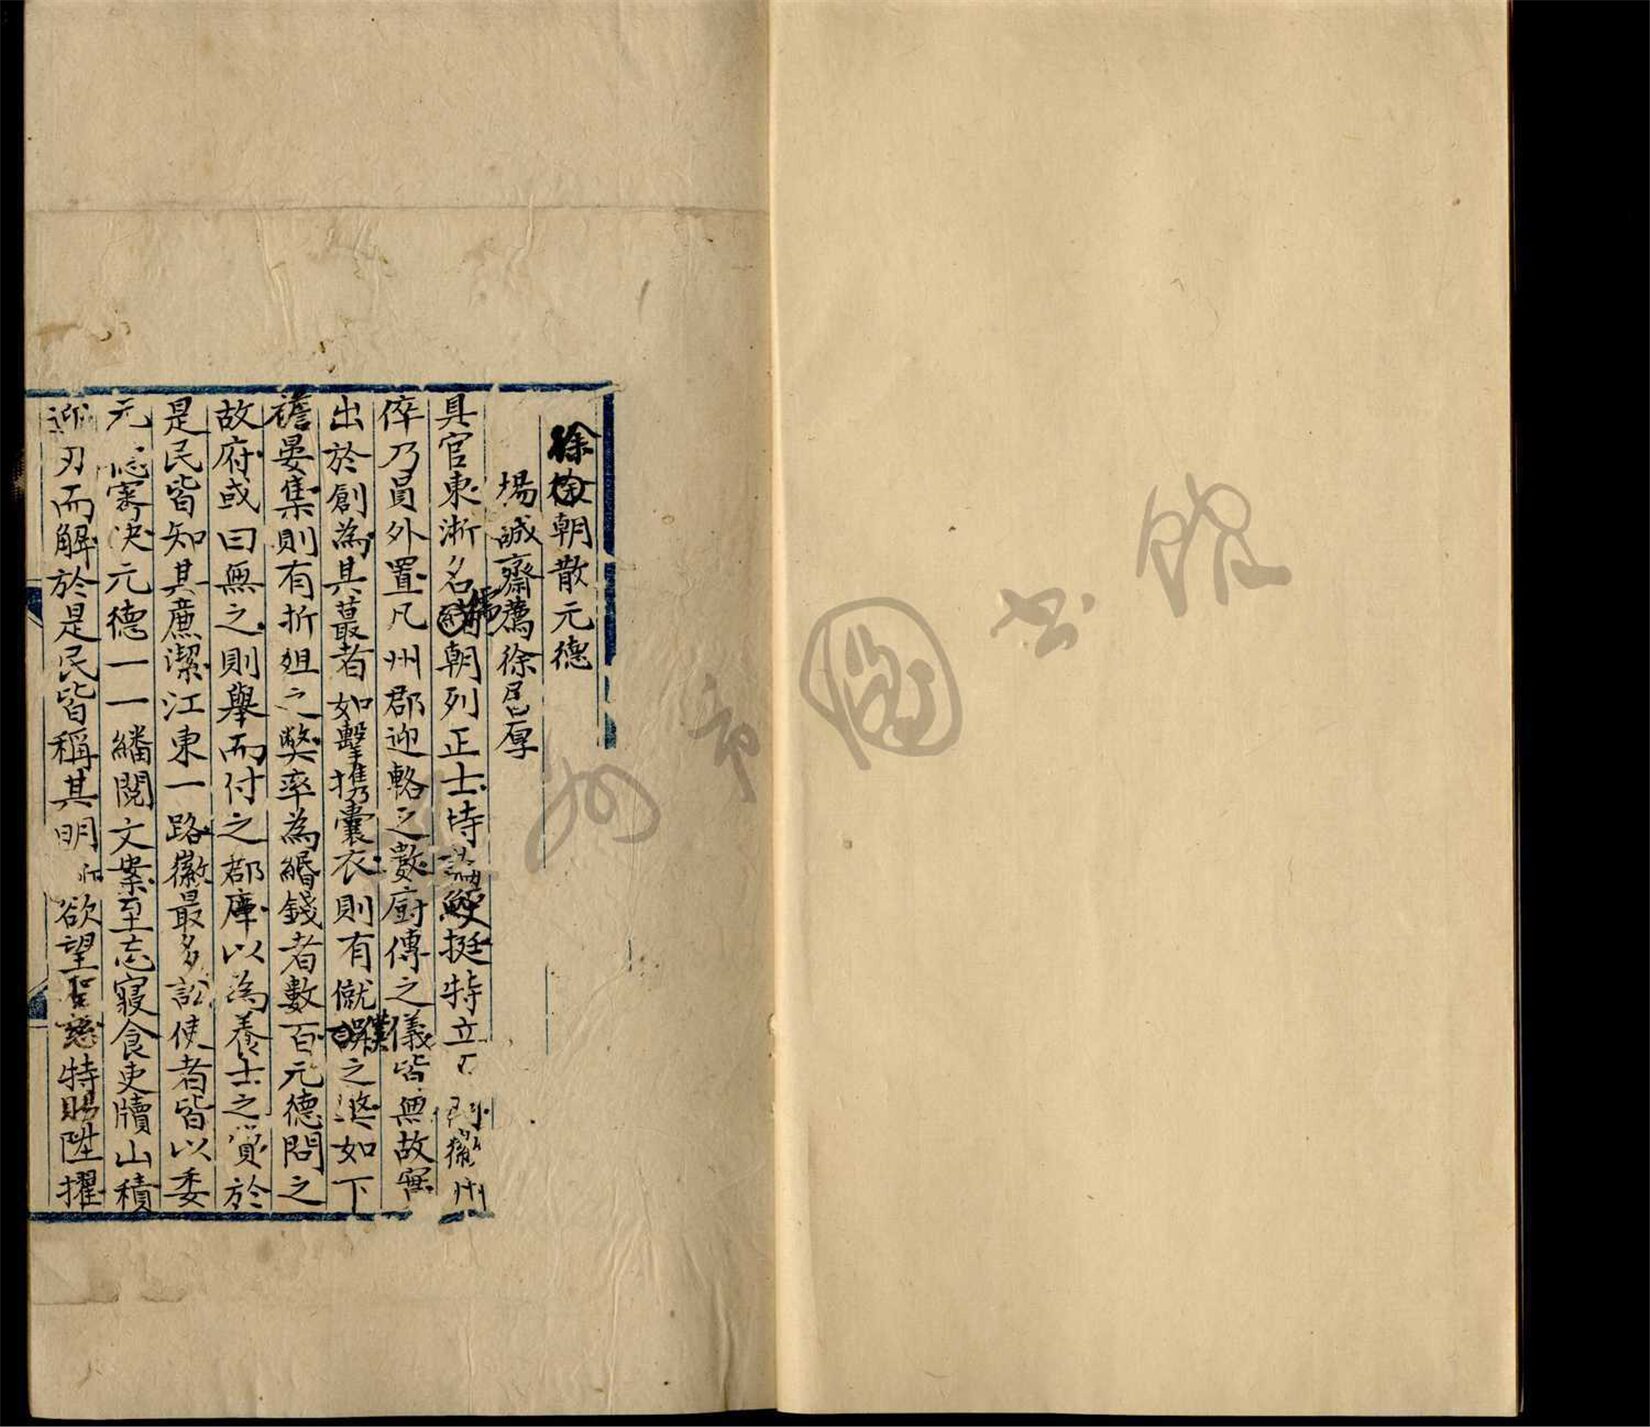 徐朝散元德
場誠齋薦徐居厚
具官東淅名儒朝列正士持論鯁挺特立 徽州
倅乃員外置凡州郡迎輅之數廚傳之儀皆無故寔
出於創為其蕞者如擊擕囊衣則有僦襆之遞如下
襜晏集則有折俎之獘率為緡錢者數百元德問之
故府或曰無之則舉而付之郡庫以為養士之資於
是民皆知其廉潔江東一路徽最多訟使者皆以委
元 審决元德一一繙閱文案至忘寢食吏牘山積
迎刃而解於是民皆稱其明 欲望聖慈特賜陞擢
州市圖书館